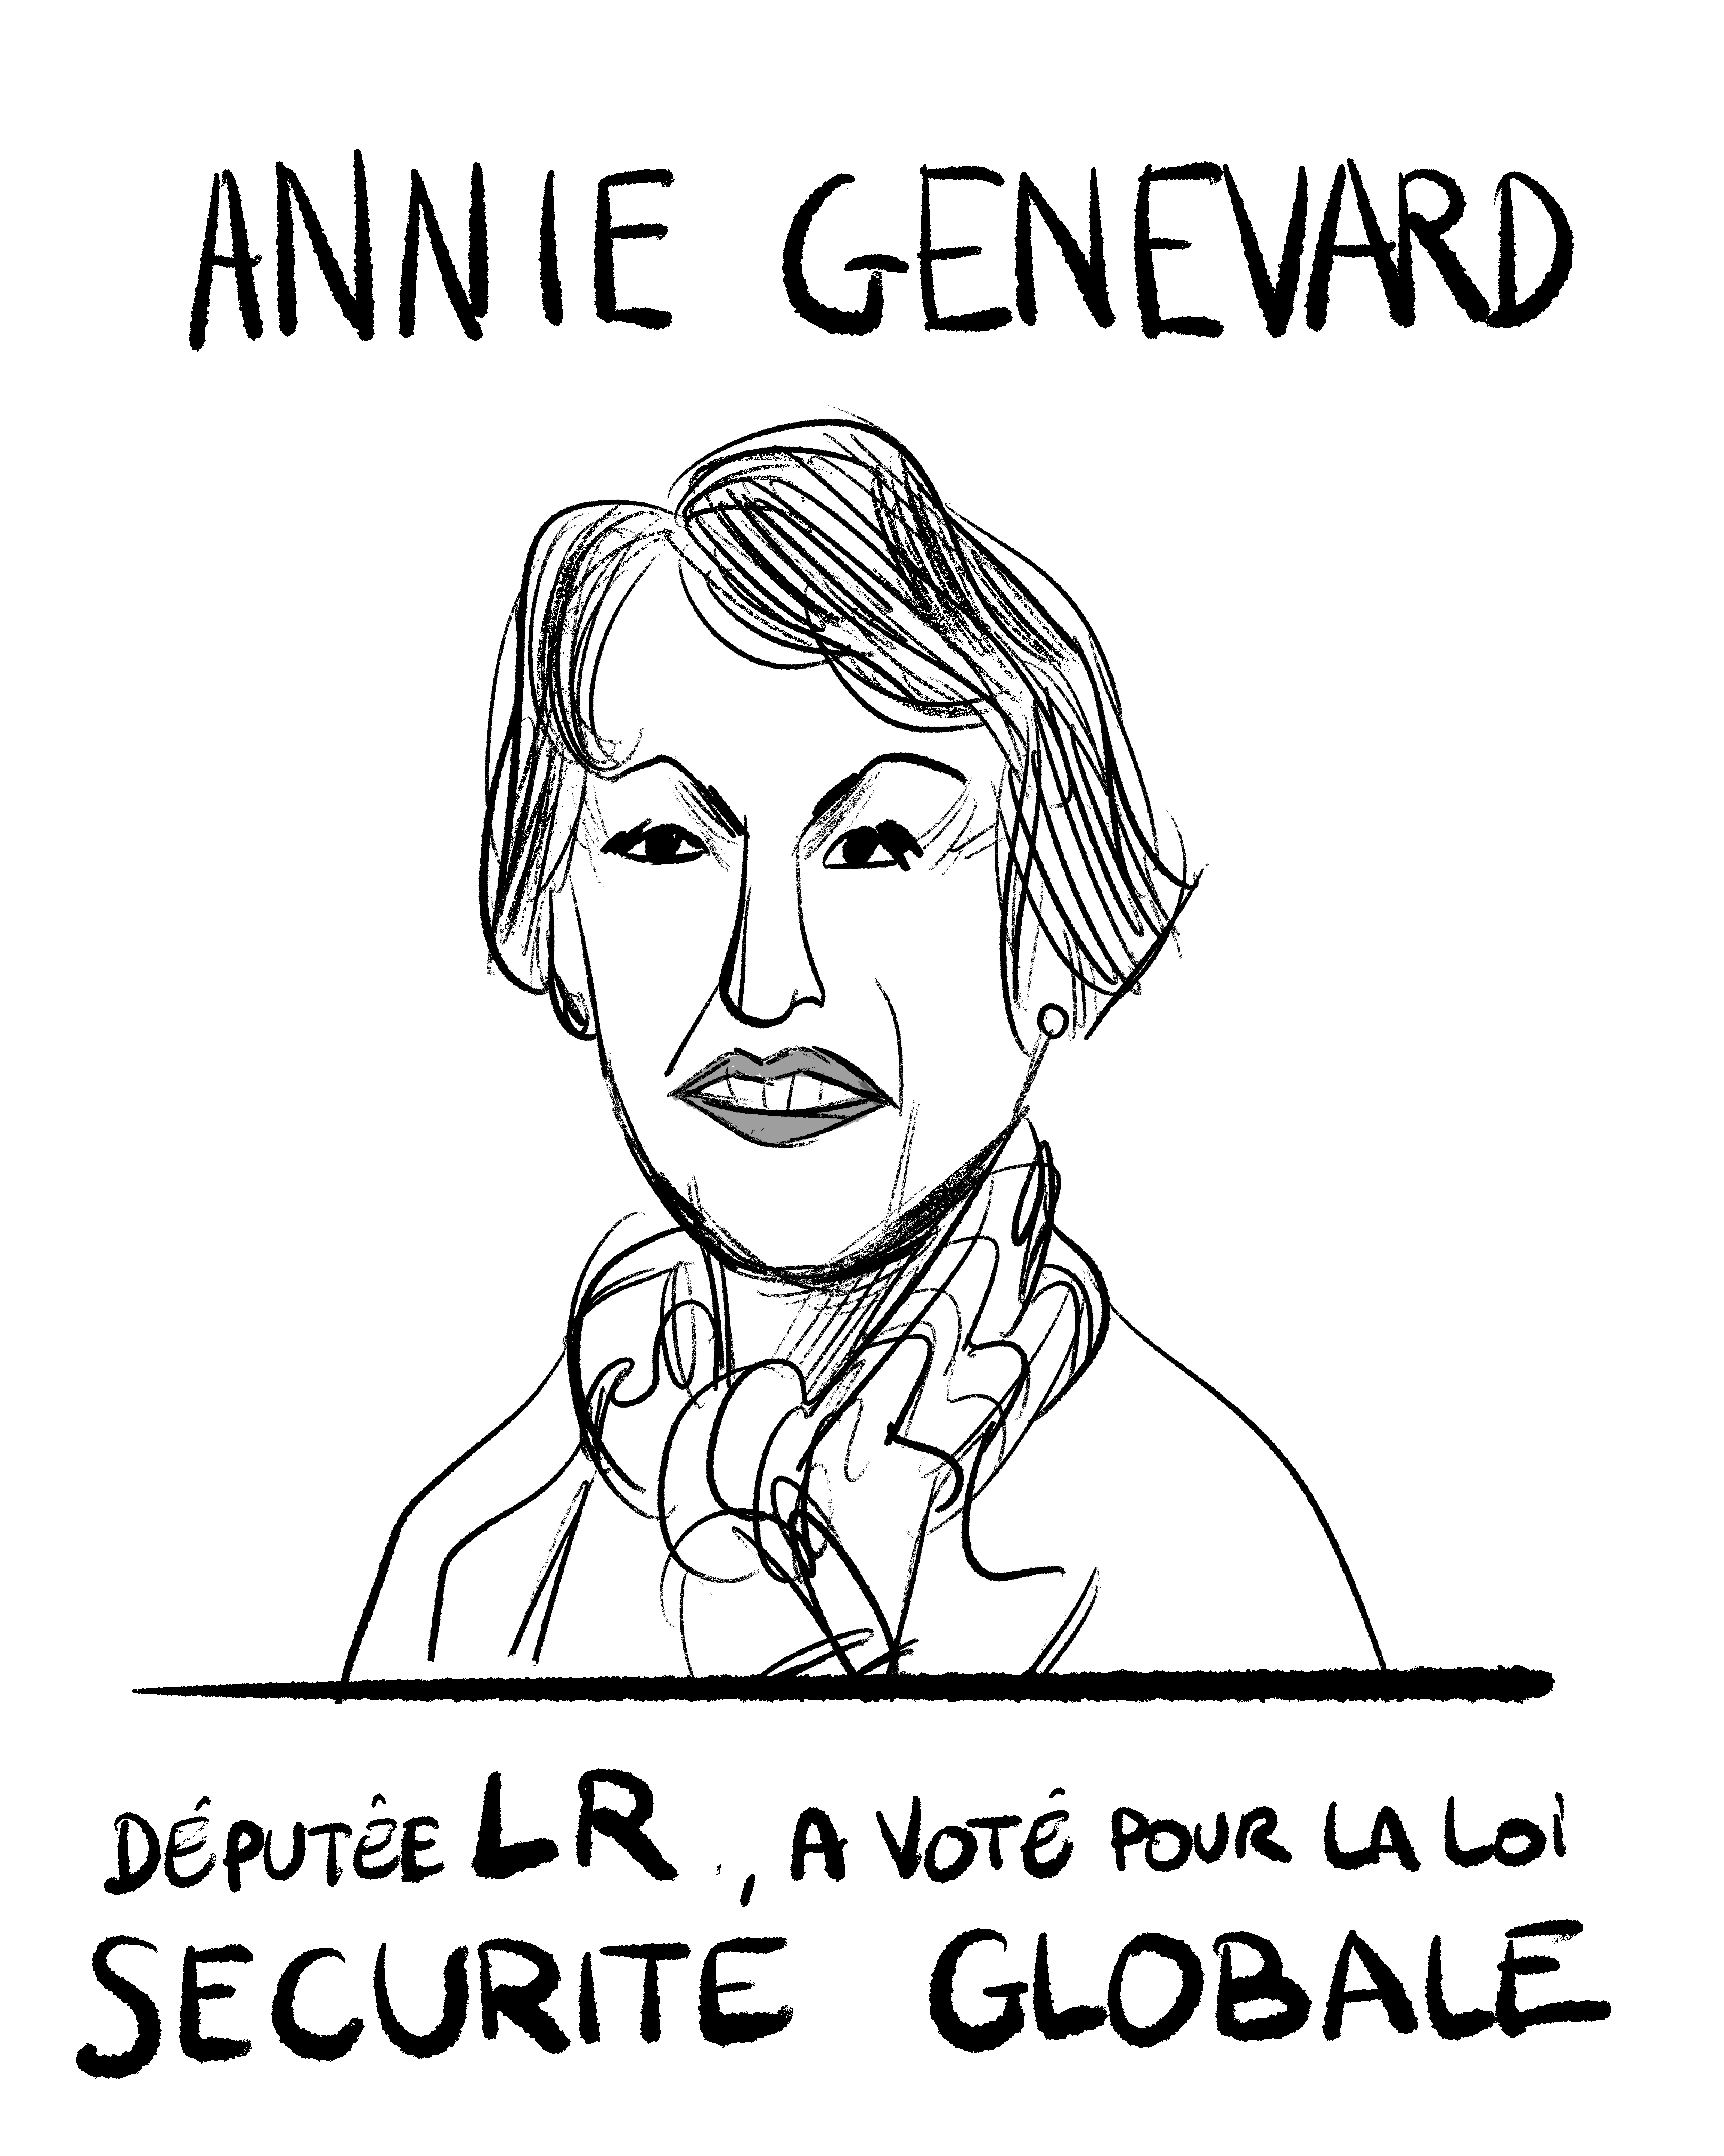 ANNIE GENEVARD
DÉPUTÉE LR, A VOTÉ POUR LA LOI
SECURITÉ GLOBALE